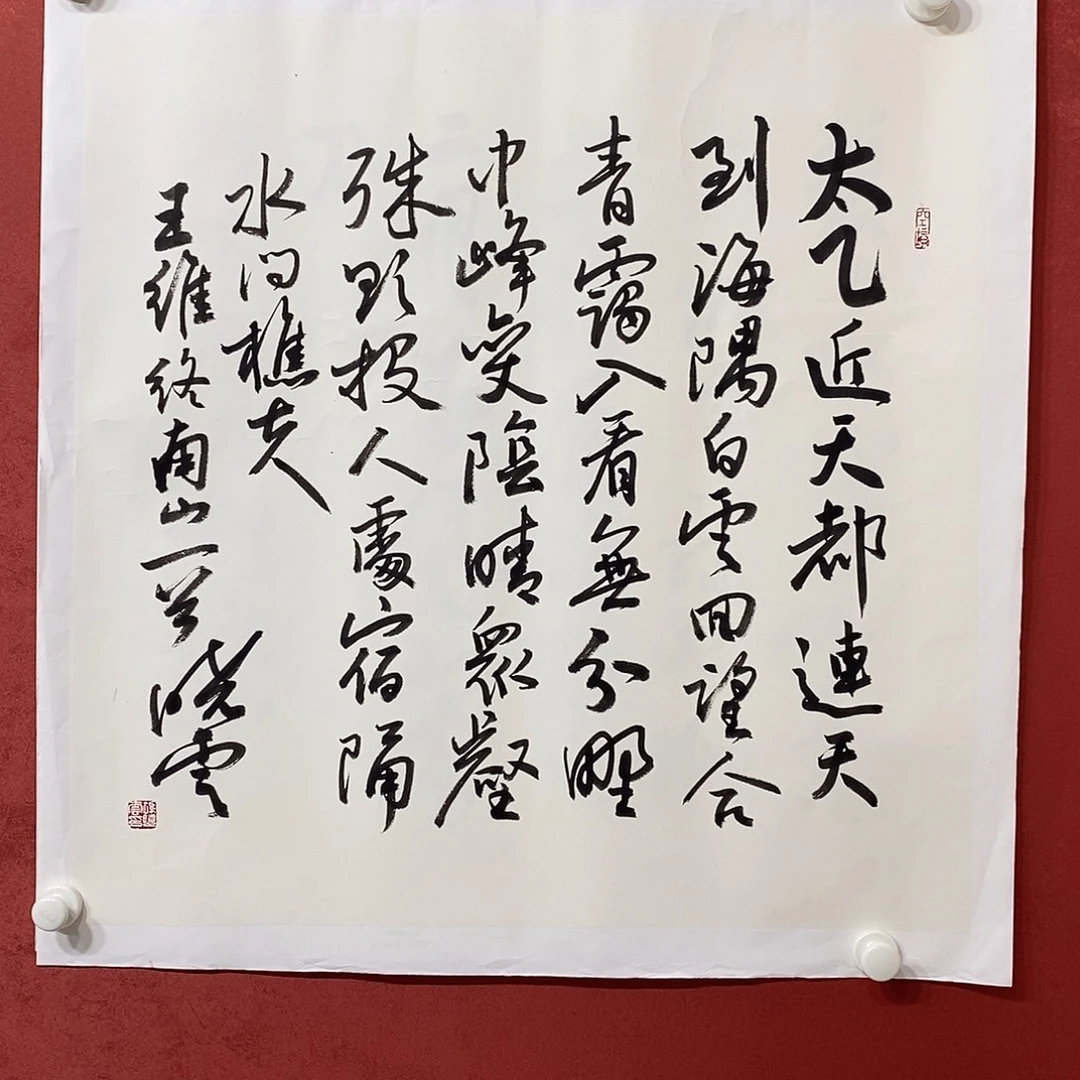 太乙近天都連天
到海隅白雲回望合
青靄入看無分野
中峰變陰晴眾壑
殊欲投人處宿隔
水問樵夫
王維終南山一首曉雲